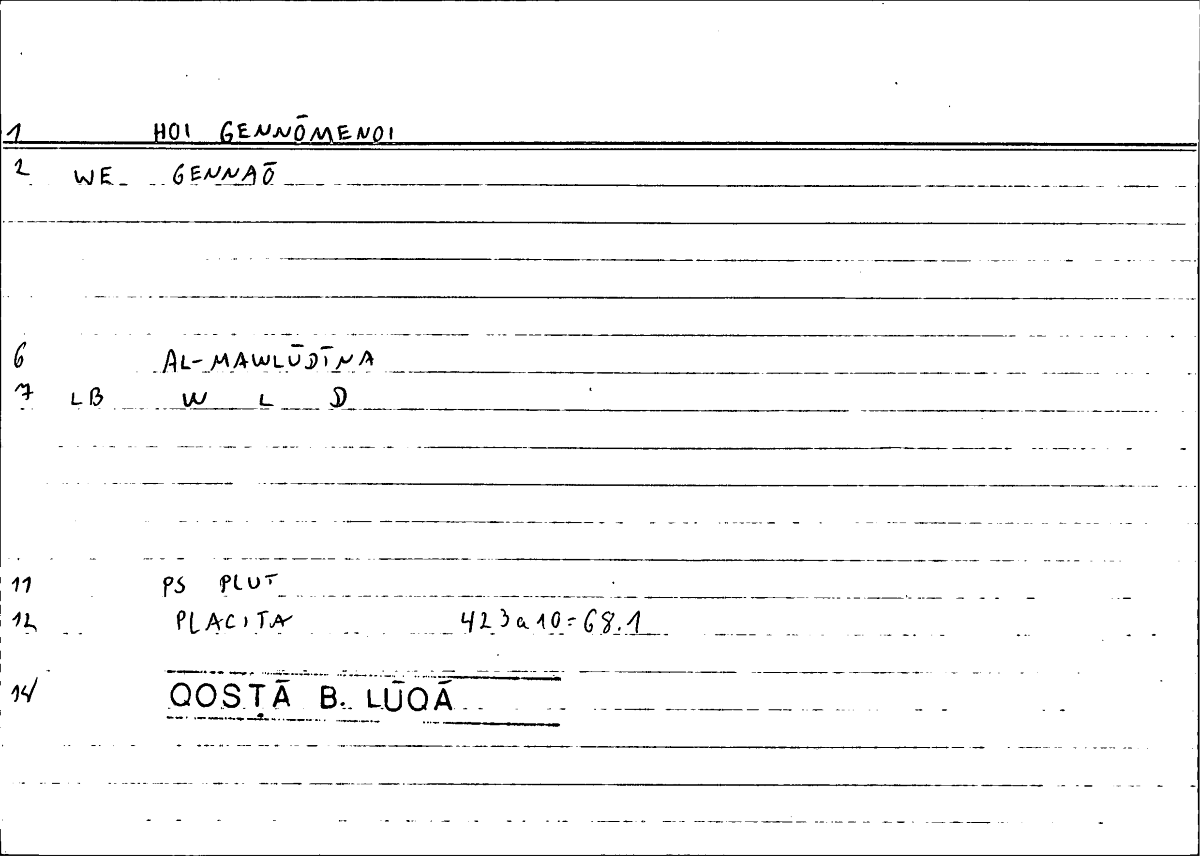 1 HOI GENNŌMENOI
2 WE GENNAŌ
6 AL-MAWLŪDĪNA
7 LB W L D
11 PS PLUT
12 PLACITA 423a10=68.1
14 QOSṬĀ B. LŪQĀ